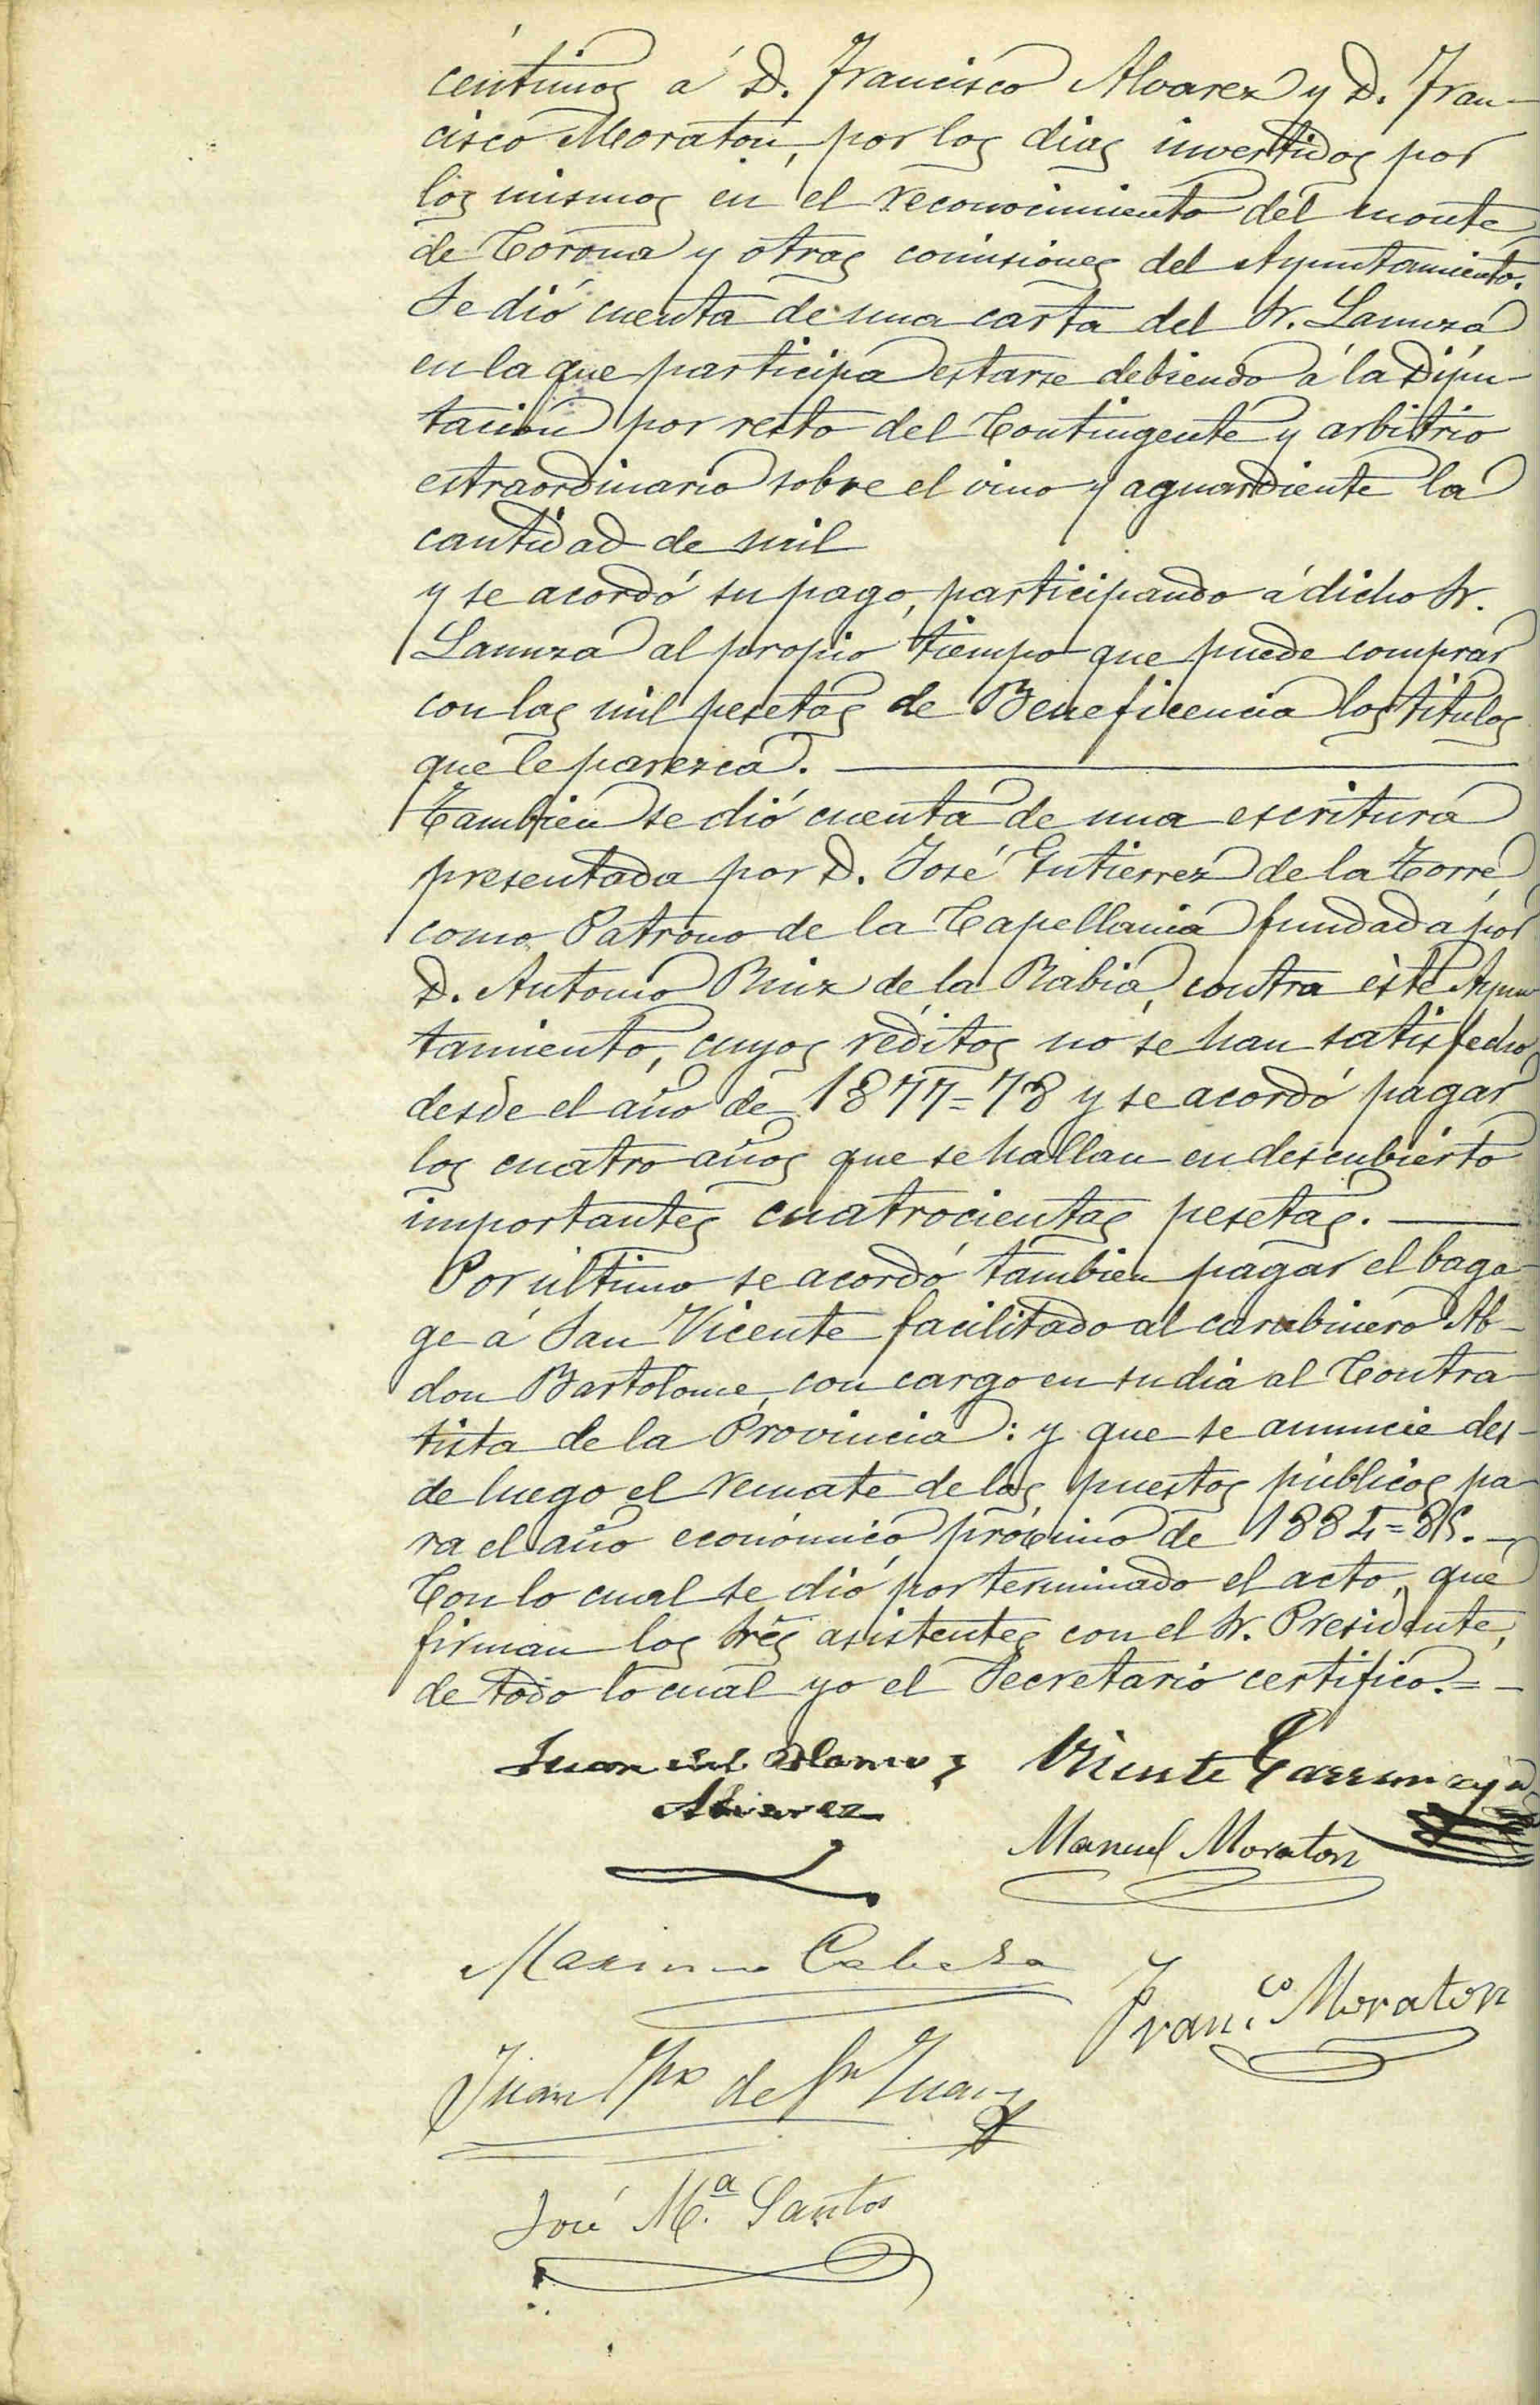 céntimos á D. Francisco Alvarez y D. Fran-
cisco Moraton, por los dias invertidos por
los mismos en el reconocimiento del monte
de Corona y otras comisiones del Ayuntamiento.
Se dió cuenta de una carta del Sr. Lanuza
en la que participa estarse debiendo á la Dipu-
tacion por resto del Contingente y arbitrio
estraordinario sobre el vino y aguardiente la
cantidad de mil
y se acordó su pago, participando á dicho Sr.
Lanuza al propio tiempo que puede comprar
con las mil pesetas de Beneficencia los titulos
que le parezca.
Tambien se dió cuenta de una escritura
presentada por D. José Gutierrez de la Torre,
como Patrono de la Capellania fundada por
D. Antonio Ruiz de la Rabia, contra éste Ayun
tamiento, cuyos réditos no se han satisfecho
desde el año de 1877=78 y se acordó pagar
los cuatro años que se hallan en descubierto
importantes cuatrocientas pesetas.
Por ultimo se acordó tambien pagar el baga-
ge á San Vicente facilitado al carabinero Ab-
don Bartolome, con cargo en su dia al Contra-
tista de la Provincia: y que se anuncie des-
de luego el remate de los puestos públicos pa-
ra el año económico próximo de 1884=85.
Con lo cual se dió por terminado el acto, que
firman los Sres asistentes con el Sr. Presidente,
de todo lo cual yo el Secretario certifico.=
Juan del Vicente
Alvarez
Manuel Moraton
Maximo Cabeza
Fran.co Moraton
Juan de Sn Juan
José M.a Santos